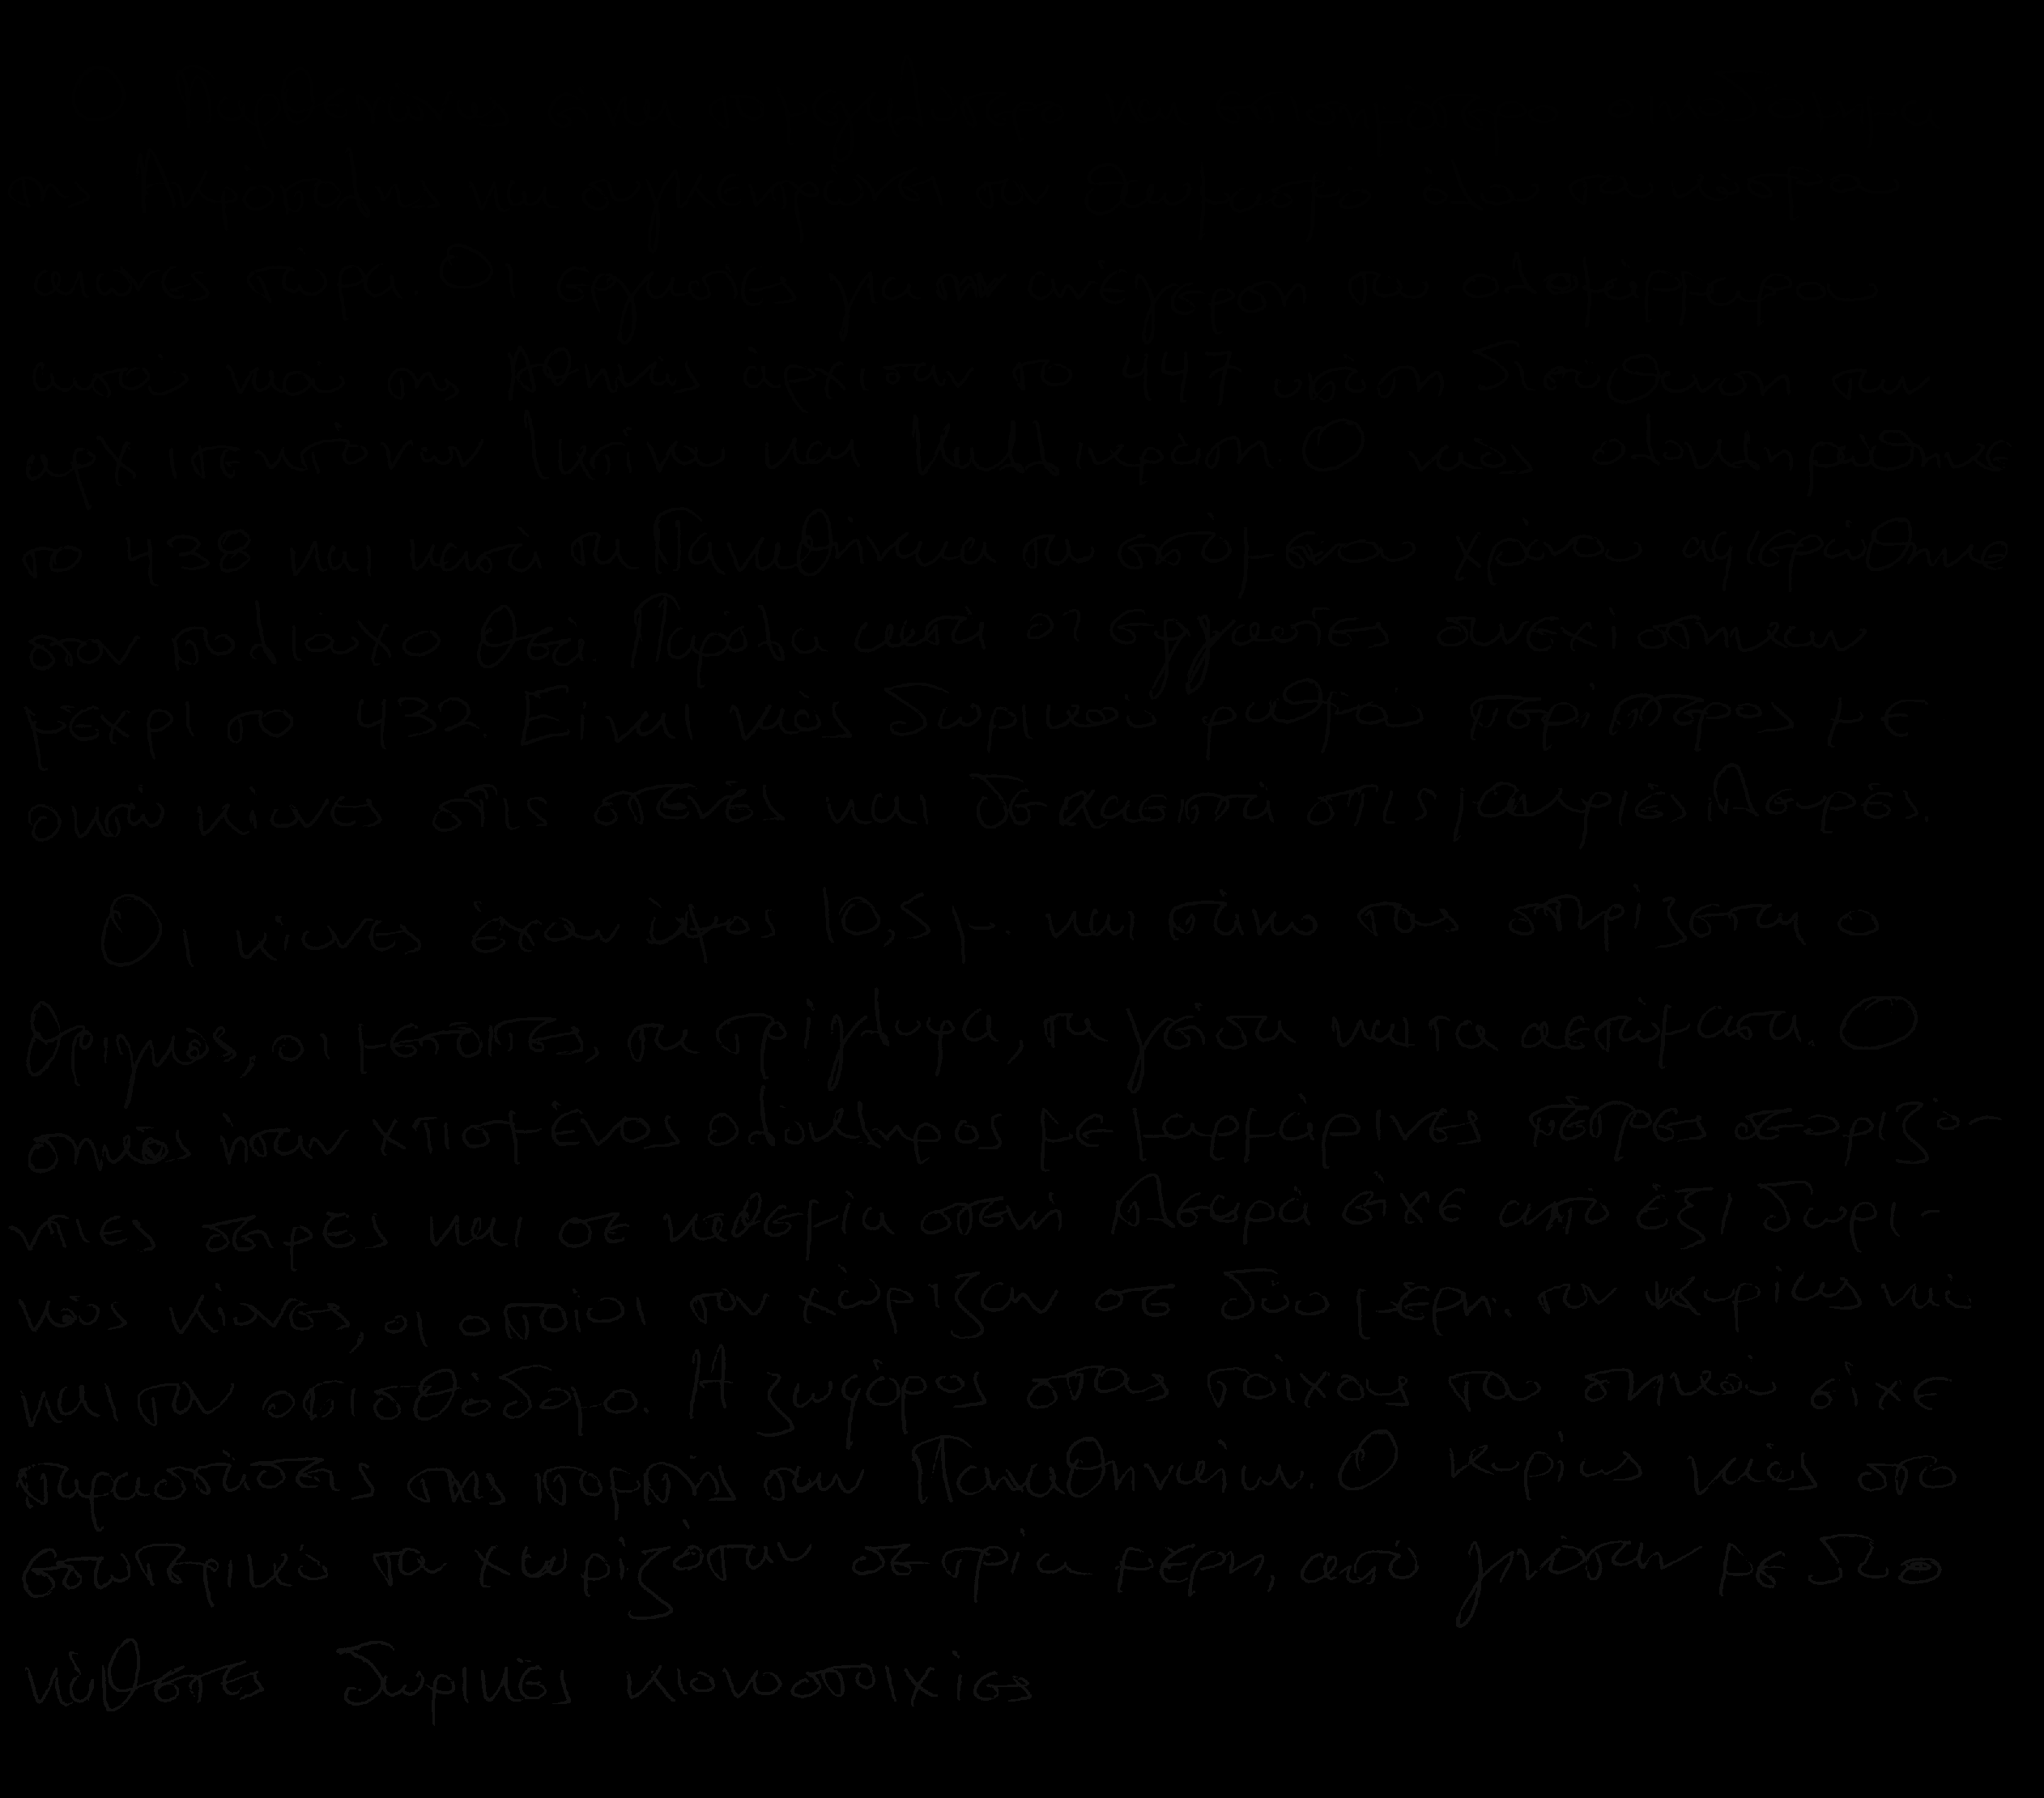 της Ακροπόλης και συγκεντρώνει τον θαυμασμό όλου του κόσμου
αιώνες τώρα. Οι εργασίες για την ανέγερση του ολομάρμαρου
αυτού ναού της Αθηνάς άρχισαν το 447 υπό τη διεύθυνση των
αρχιτεκτόνων Ικτίνου και Καλλικράτη Ο ναός ολοκληρώθηκε
το 438 και κατά τα Παναθήναια του επόμενου χρόνου αφιερώθηκε
στην πολιούχο θεά. Παρόλα αυτά οι εργασίες συνεχίστηκαν
μέχρι το 432. Είναι ναός δωρικού ρυθμού περίπτερος με
οκτώ κίονες στις στενές και δεκαεπτά στις μακριές πλευρές.
Οι κίονες έχουν ύψος 10,5 μ. και πάνω τους στηρίζεται ο
θριγκός, οι μετόπες, τα τρίγλυφα, τα γείσα και τα αετώματα. Ο
σηκός ήταν χτισμένος ολόκληρος με μαρμάρινες πέτρες σε οριζό-
ντιες σειρές και σε καθεμία στενή πλευρά είχε από έξι δωρι-
κούς κίονες, οι οποίοι τον χώριζαν σε δύο μέρη. τον κυρίως ναό
και τον οπισθόδομο. Η ζωφόρος στους τοίχους του σηκού είχε
παραστάσεις της πομπής των Παναθηναίων. Ο κυρίως ναός στο
εσωτερικό του χωριζόταν σε τρία μέρη, αυτό γινόταν με δυο
κάθετες δωρικές κιονοστοιχίες